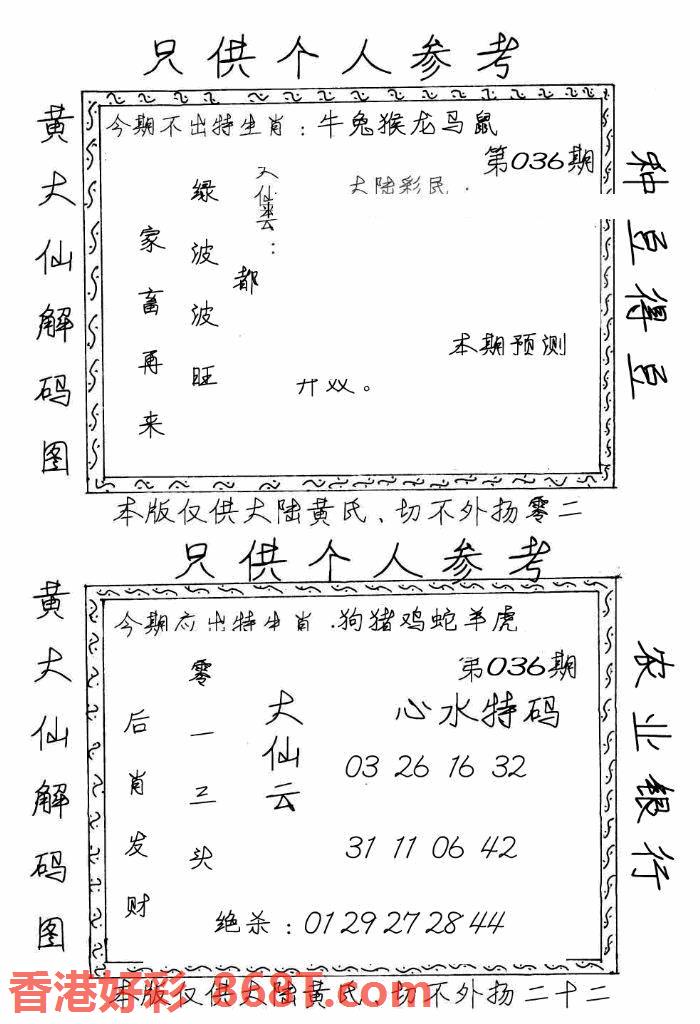 只供个人参考
黄大仙解码图
今期不出特生肖：牛兔猴龙马鼠
第036期
大仙云：
大陆彩民.
绿波波旺
家畜再来
都
本期预测
廾双。
种豆得豆
本版仅供大陆黄氏、切不外扬零二
只供个人参考
黄大仙解码图
今期应出特生肖.狗猪鸡蛇羊虎
第036期
零一三头
后肖发财
大仙云
心水特码
03 26 16 32
31 11 06 42
绝杀：01 29 27 28 44
农业银行
香港好彩 868T.com
本版仅供大陆黄氏、切不外扬二十二